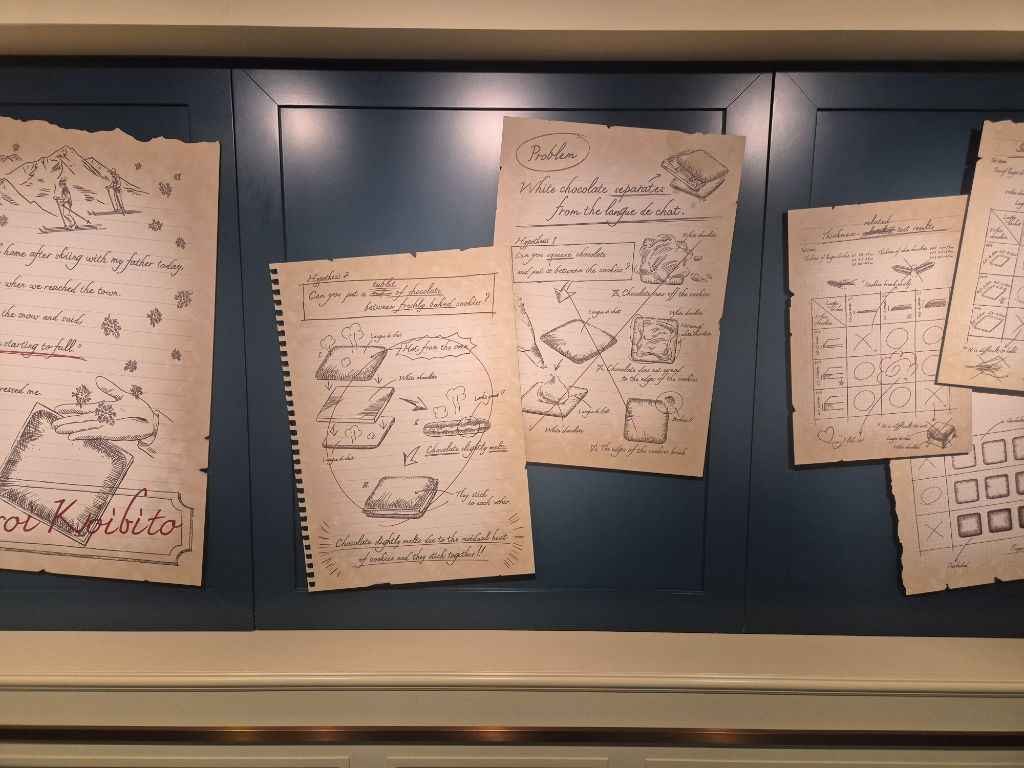 home after skiing with my father today,
when we reached the town.
the snow and said,
starting to fall."
ressed me.
roi Koibito
Hypothesis 2
tablet
Can you put a of chocolate
between freshly baked cookies?
Langue de chat
Hot from the oven
White chocolate
Langue de chat
Chocolate slightly melts
They stick
to each other
Chocolate slightly melts due to the residual heat
of cookies and they stick together!!
Problem
White chocolate separates
from the langue de chat.
Hypothesis 1
Can you squeeze chocolate
and put it between the cookies?
White chocolate
Chocolate runs off the cookies
Langue de chat
Chocolate does not spread
to the edges of the cookies
Langue de chat
White chocolate
Broken!!
The edges of the cookies break
related
Thickness- test results
Thickness of langue de chat
Thickness of white chocolate
Cookies break easily
Langue de chat
White chocolate
I like it!
"It is difficult to eat"
Langue de chat
White chocolate
"It is difficult to
Overbaked